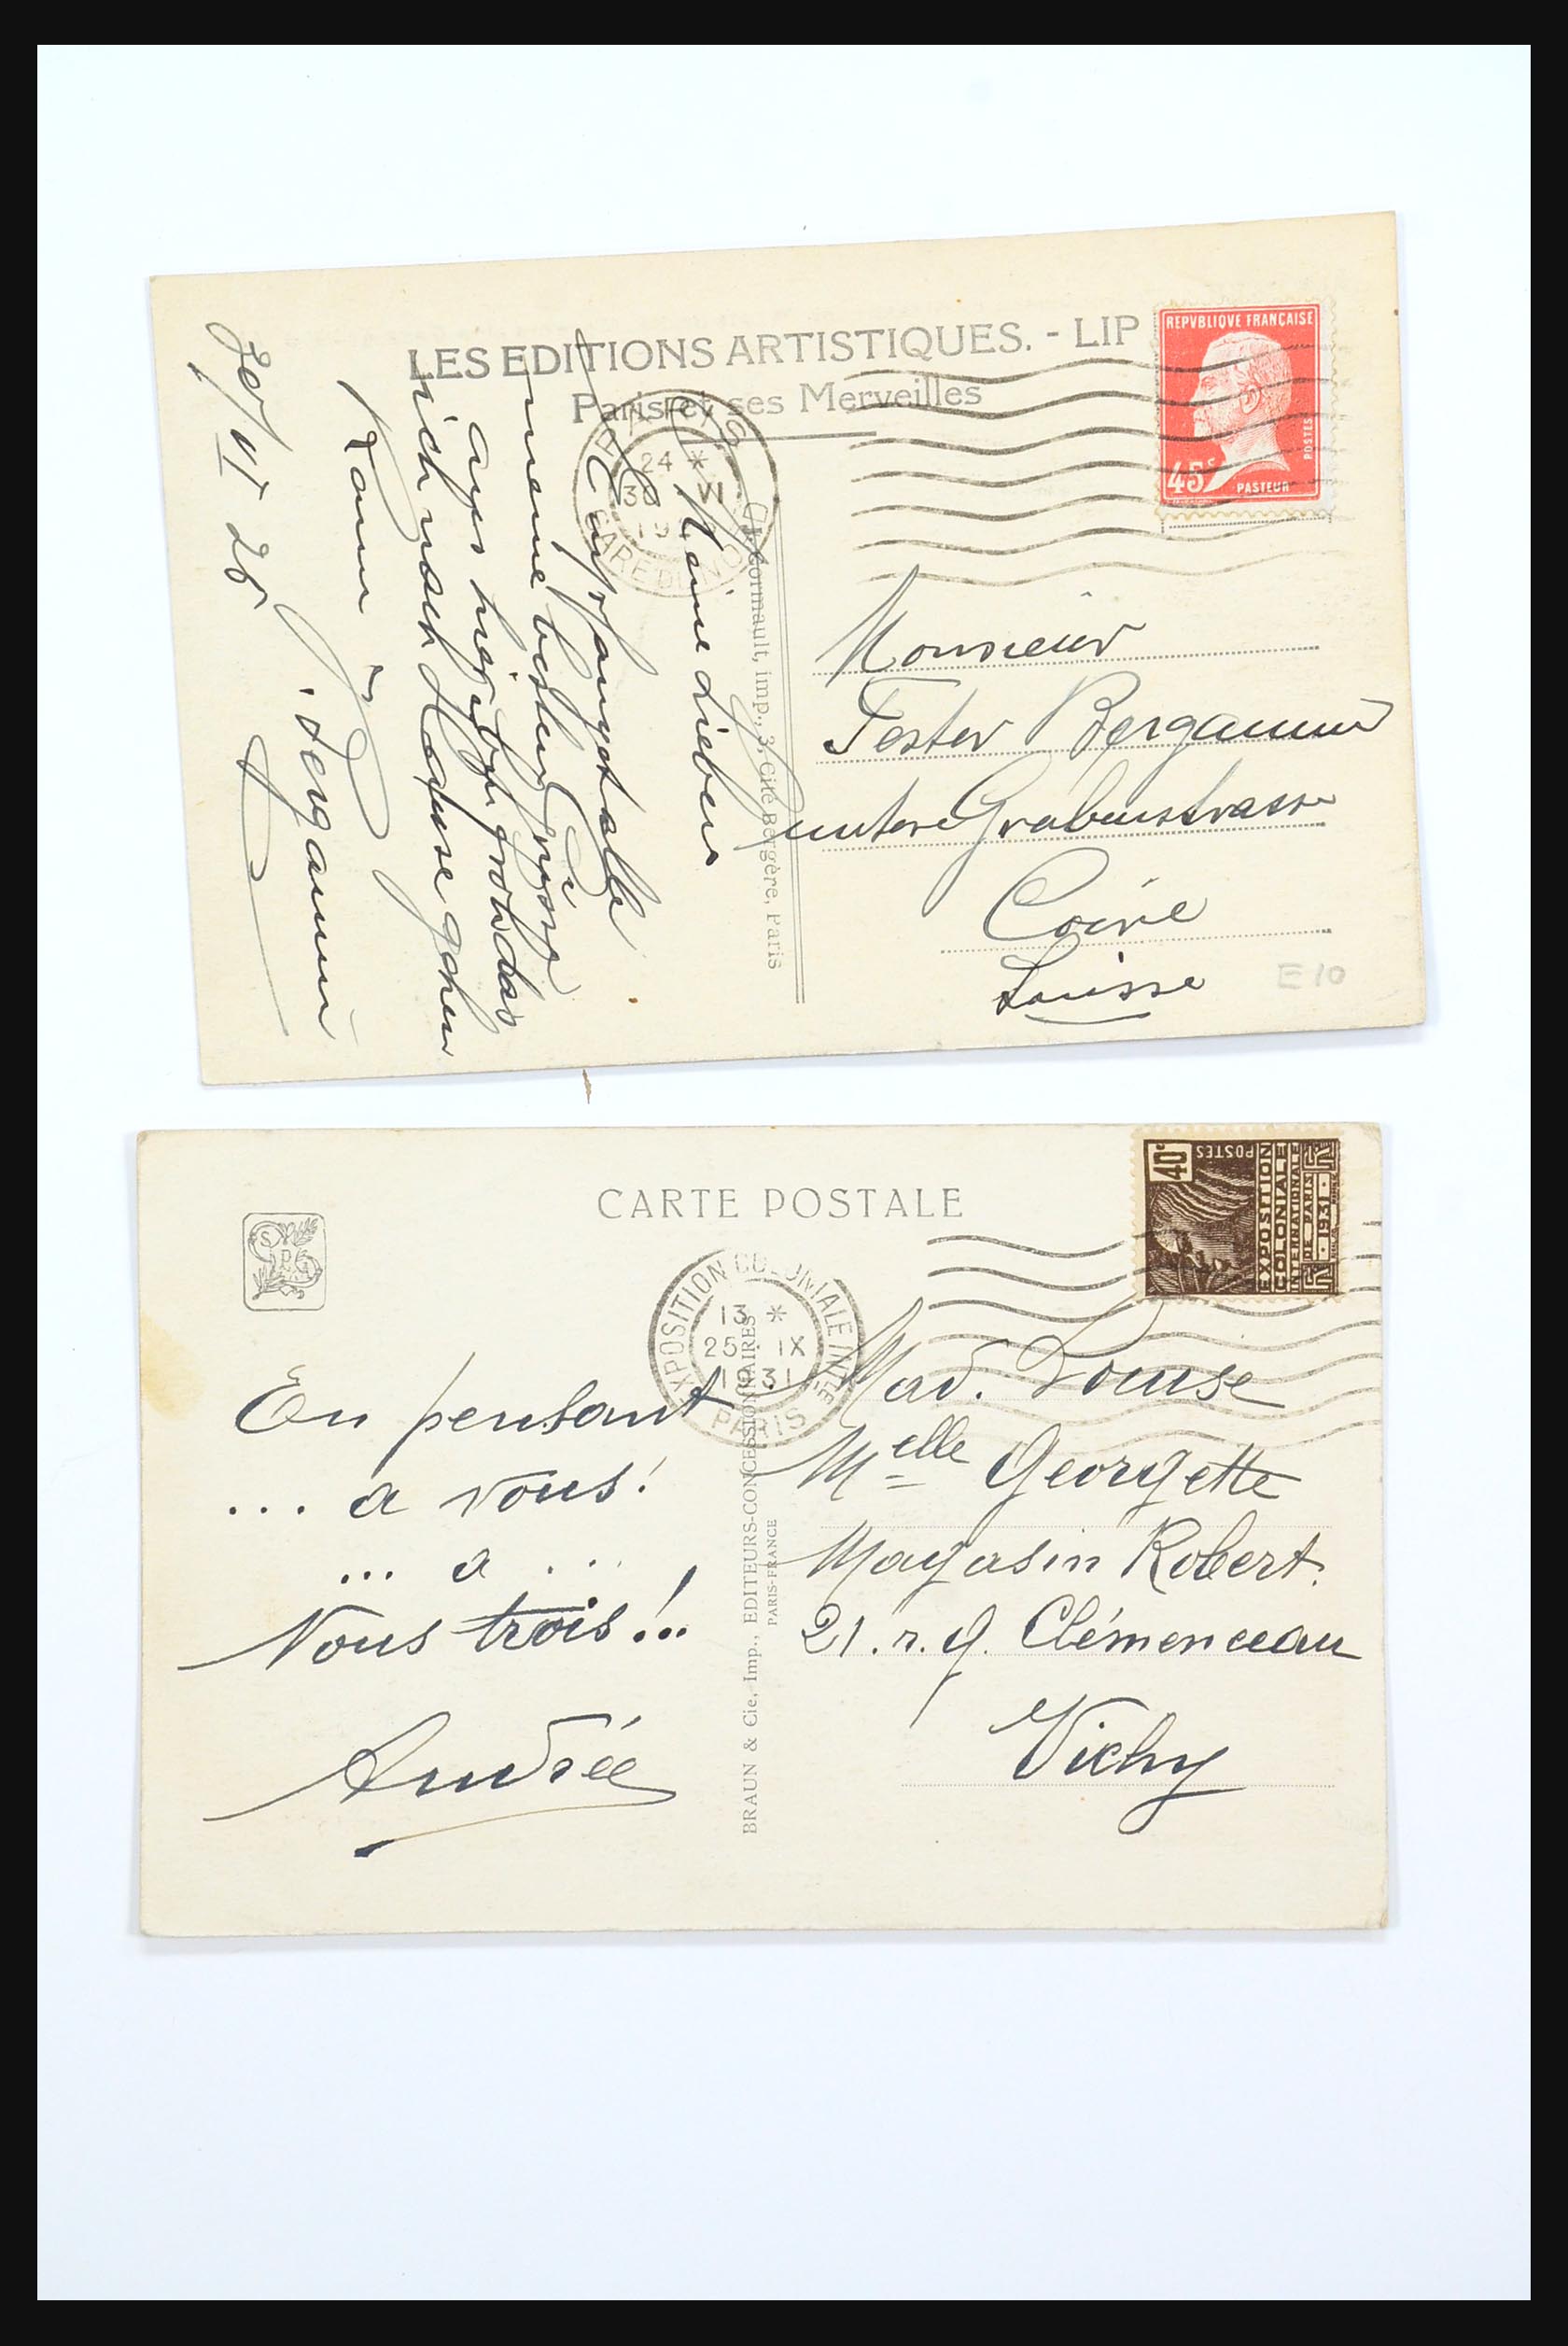 LES EDITIONS ARTISTIQUES. - LIP
Paris et ses Merveilles
REPVBLIQVE FRANÇAISE
POSTES
45c
PASTEUR
PARIS
24 *
30 VI
19
GARE DU NORD
Cormault, imp., 3, Cité Bergère, Paris
Monsieur
Bergamin
untere Grabenstrasse
Coire
Suisse
E10
Meine Lieben
alle
meine besten Grüsse
mich nach Hause gehen
Kann
Bergamin
CARTE POSTALE
40c
POSTES
EXPOSITION
COLONIALE
INTERNATIONALE
DE PARIS
1931
EXPOSITION COLONIALE INTLE
13 *
25 IX
1931
PARIS
BRAUN & Cie, Imp., EDITEURS-CONCESSIONNAIRES
PARIS-FRANCE
En pensant
... a vous!
... a ...
Nous trois!..
Andrée
Mad. Louise
Melle Georgette
Magasin Robert.
21. r. g. Clémenceau
Vichy